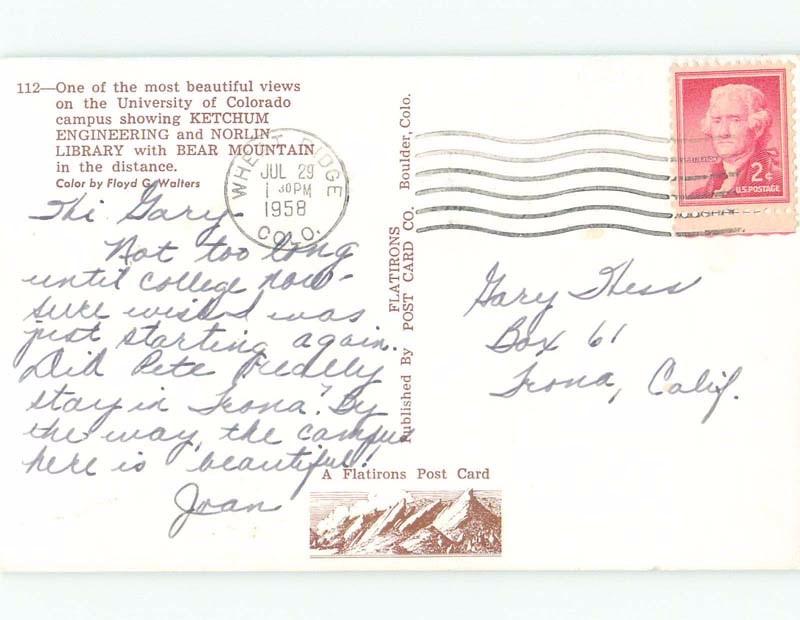 112—One of the most beautiful views
on the University of Colorado
campus showing KETCHUM
ENGINEERING and NORLIN
LIBRARY with BEAR MOUNTAIN
in the distance.
Color by Floyd G. Walters
WHEAT RIDGE
JUL 29
1 30 PM
1958
COLO.
Hi Gary-
Not too long
until college now-
sure wished I was
just starting again.
Did Pete really
stay in Trona? By
the way, the campus
here is beautiful!
Joan
Published By FLATIRONS POST CARD CO. Boulder, Colo.
2¢
U.S. POSTAGE
Gary Hess
Box 61
Trona, Calif.
A Flatirons Post Card